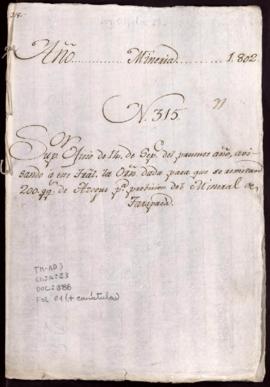 Año ......... Mineria ......... 1.802
N. 315.
Sor
Supr. Ofcio de 14. de Sepe. del presente año, avi-
sando a este Tral. la Orn. dada para que se remitan
200. qqs. de Azogue pa. provision del Mineral de
Tarapacá.
TM-AD3
DOC: 886
Fol 01 (+ carátula)